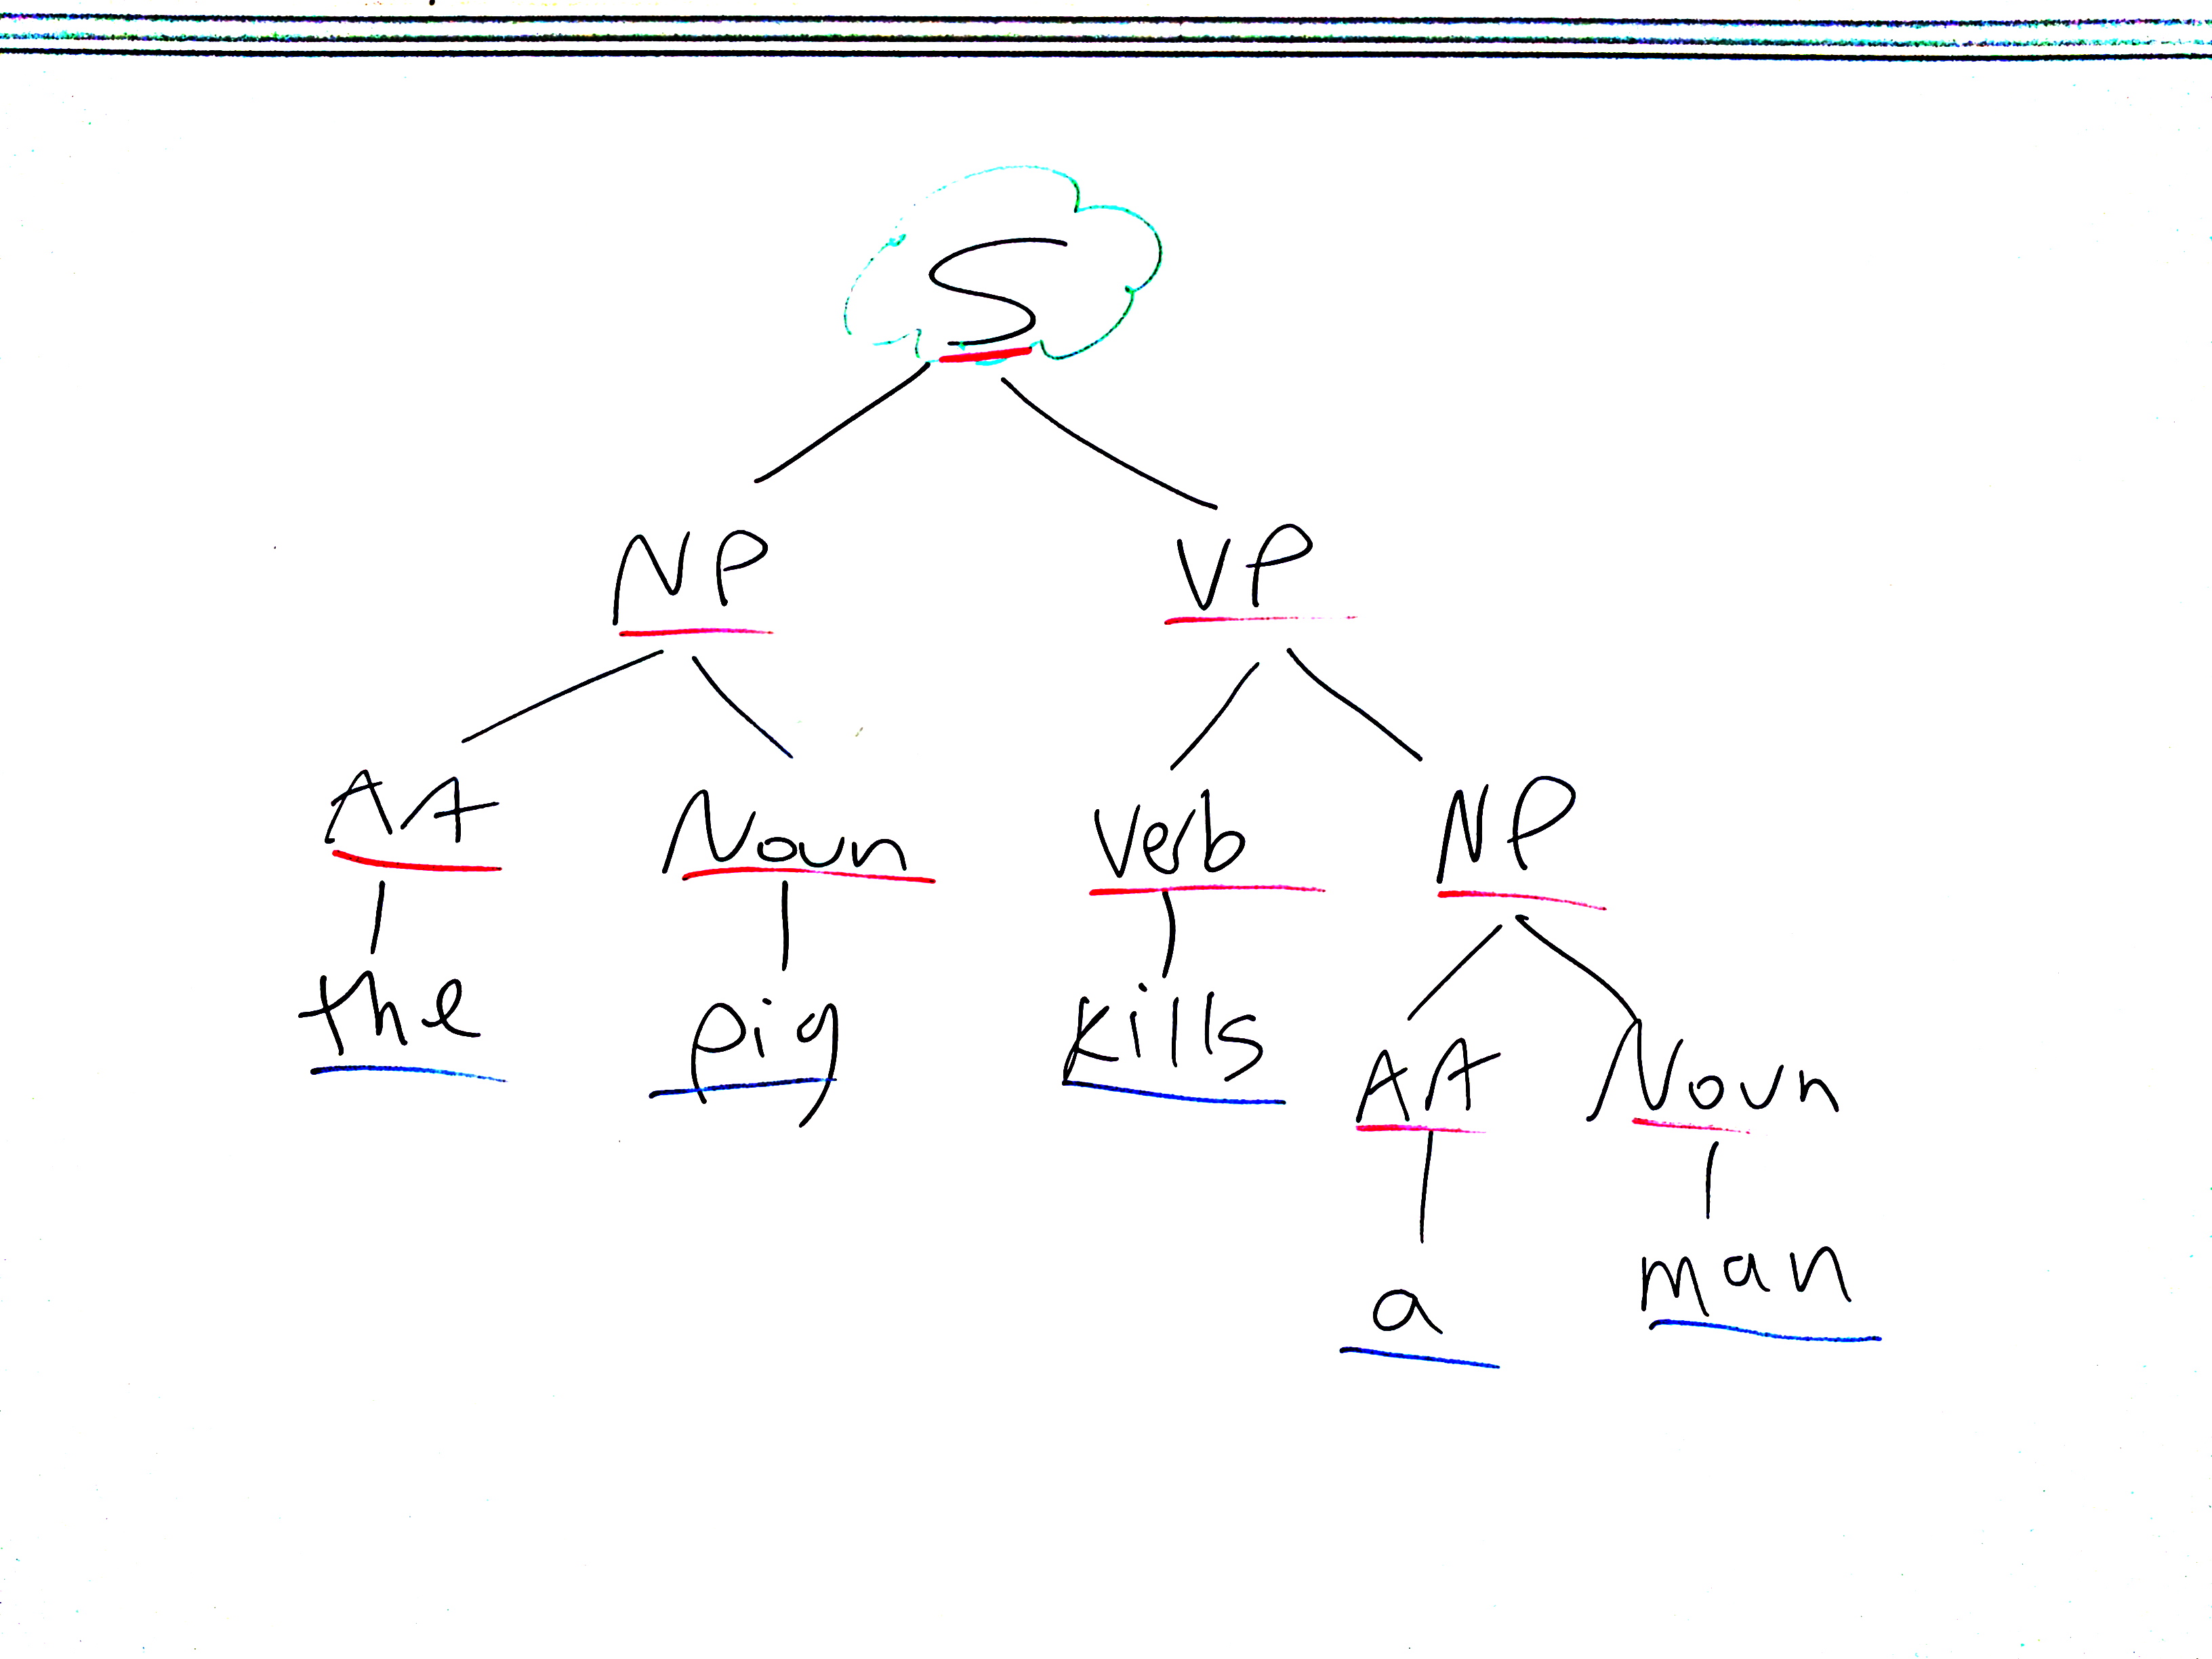 S
NP VP
Art Noun Verb NP
the pig kills Art Noun
a man